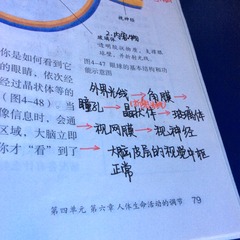 视神经
2.内容物
玻璃体
透明胶状物质，支撑眼
球壁，并折射光线。
图4-47 眼球的基本结构和功
能示意图
你是如何看到它
的眼睛，依次经
经过晶状体等的
（图4-48）。当
像信息时，会通
区域，大脑立即
你才“看”到了
外界光线→角膜→
瞳孔→晶状体→玻璃体
→视网膜→视神经
→大脑皮层的视觉中枢
正常
第四单元 第六章 人体生命活动的调节 79